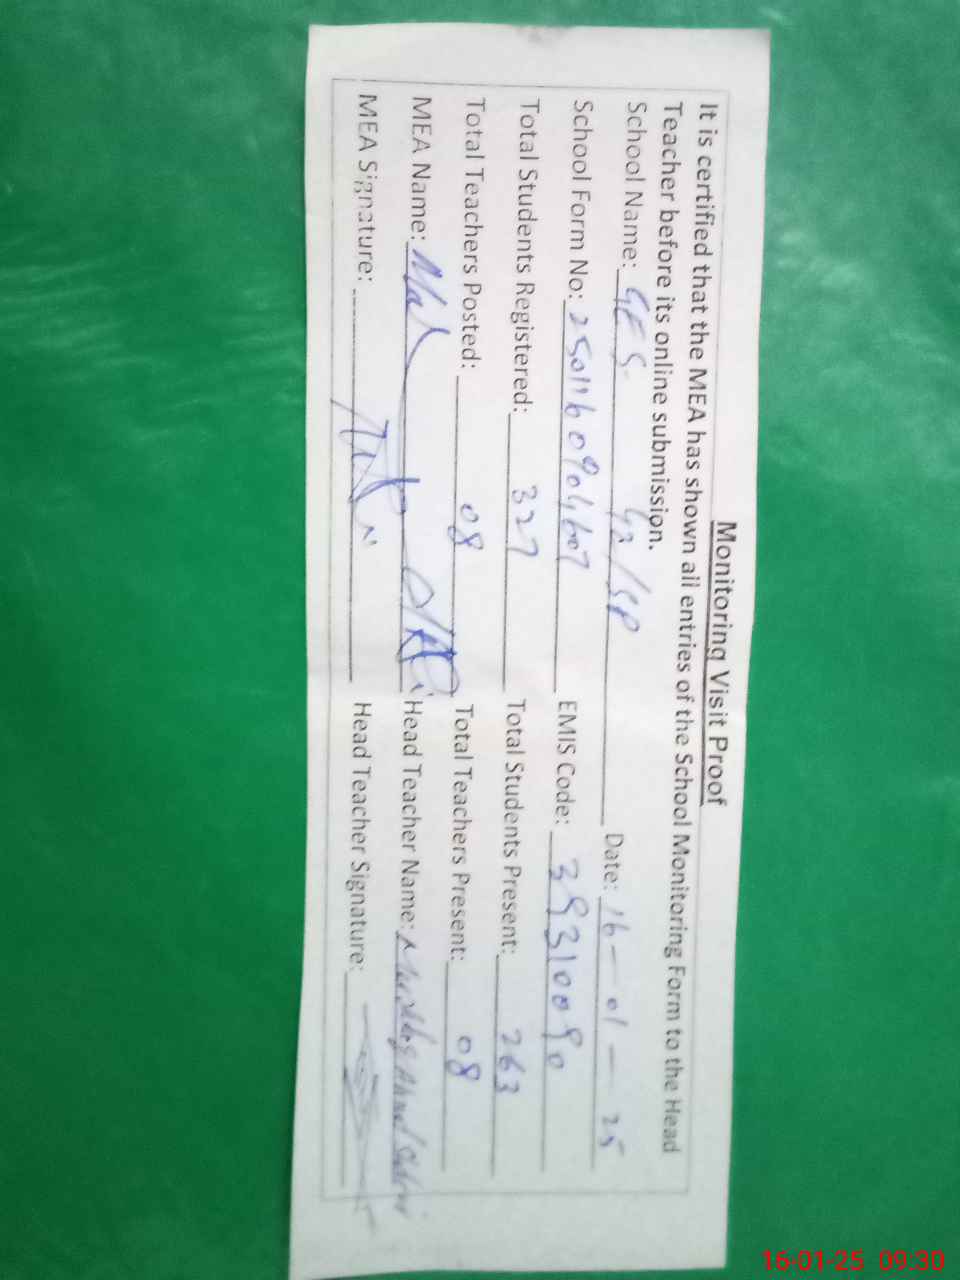 Monitoring Visit Proof
It is certified that the MEA has shown all entries of the School Monitoring Form to the Head
Teacher before its online submission.
School Name: GES 42/SP Date: 16-01-25
School Form No: EMIS Code: 39310090
Total Students Registered: 327 Total Students Present: 263
Total Teachers Posted: 08 Total Teachers Present: 08
MEA Name: Head Teacher Name:
MEA Signature: Head Teacher Signature:
16-01-25 09:30